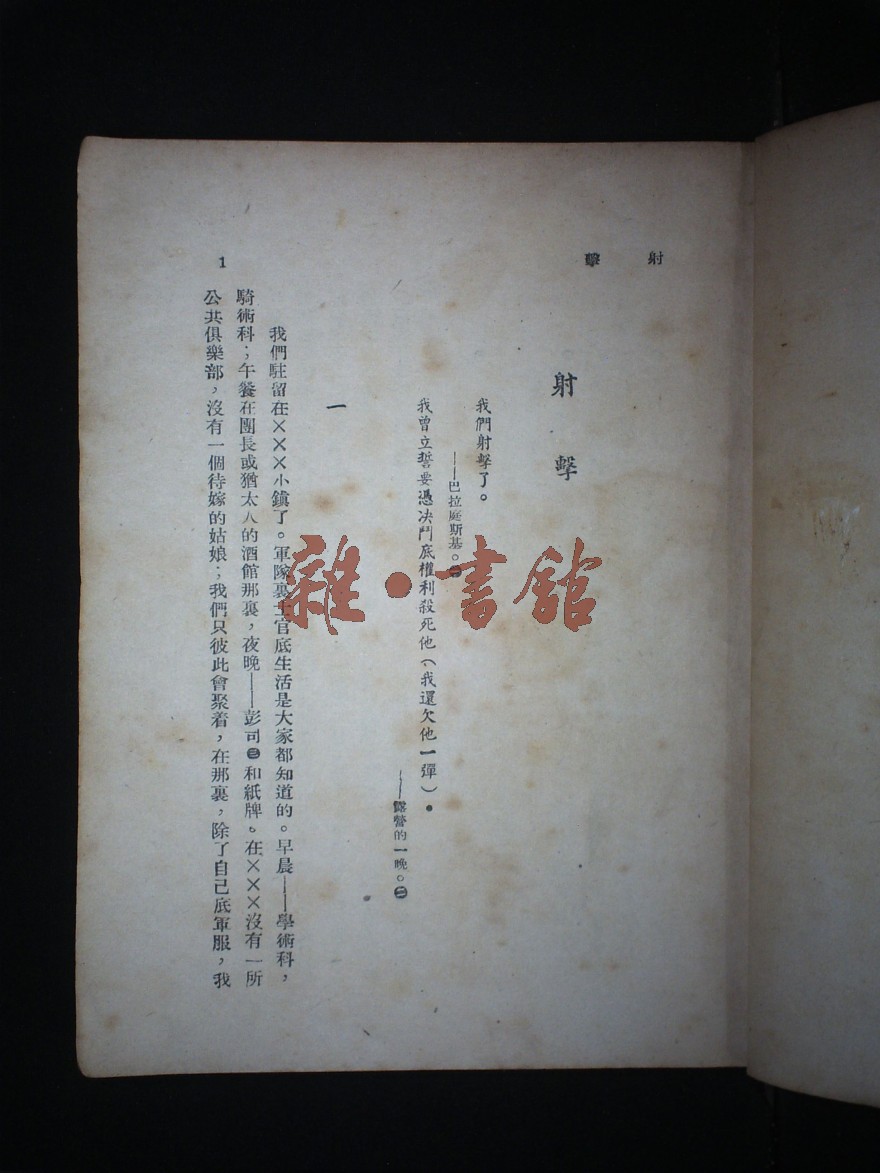 射擊
射擊
我們射擊了。
——巴拉庭斯基。㊀
我曾立誓要憑决鬥底權利殺死他（我還欠他一彈）。
——露營的一晚。㊁
一
我們駐留在×××小鎮了。軍隊裏士官底生活是大家都知道的。早晨——學術科，
騎術科；午餐在團長或猶太人的酒館那裏，夜晚——彭司㊂和紙牌。在×××沒有一所
公共俱樂部，沒有一個待嫁的姑娘；我們只彼此會聚着，在那裏，除了自己底軍服，我
1
雜·書館